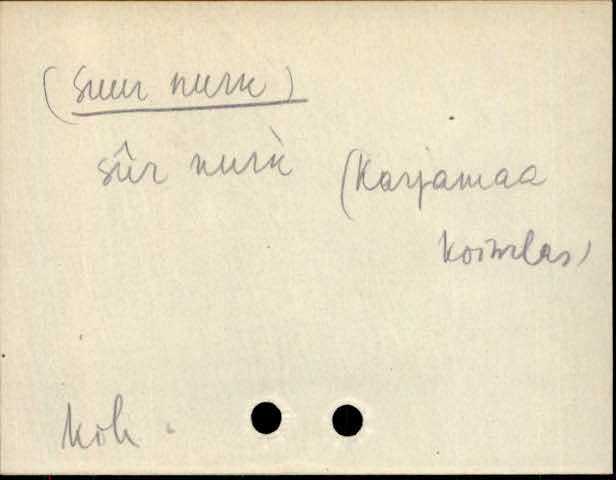 (Suur nurk)
sûr nurk̀ (Karjamaa
Koivilas)
Koh.